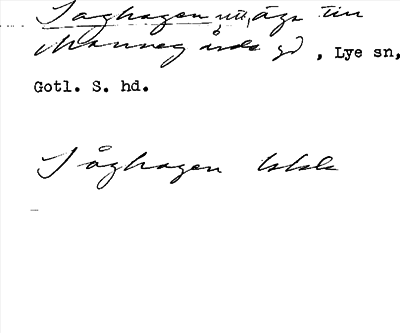 Saghagen utt, ägr till
Mannegårda gd, Lye sn,
Gotl. S. hd.
Såghagen